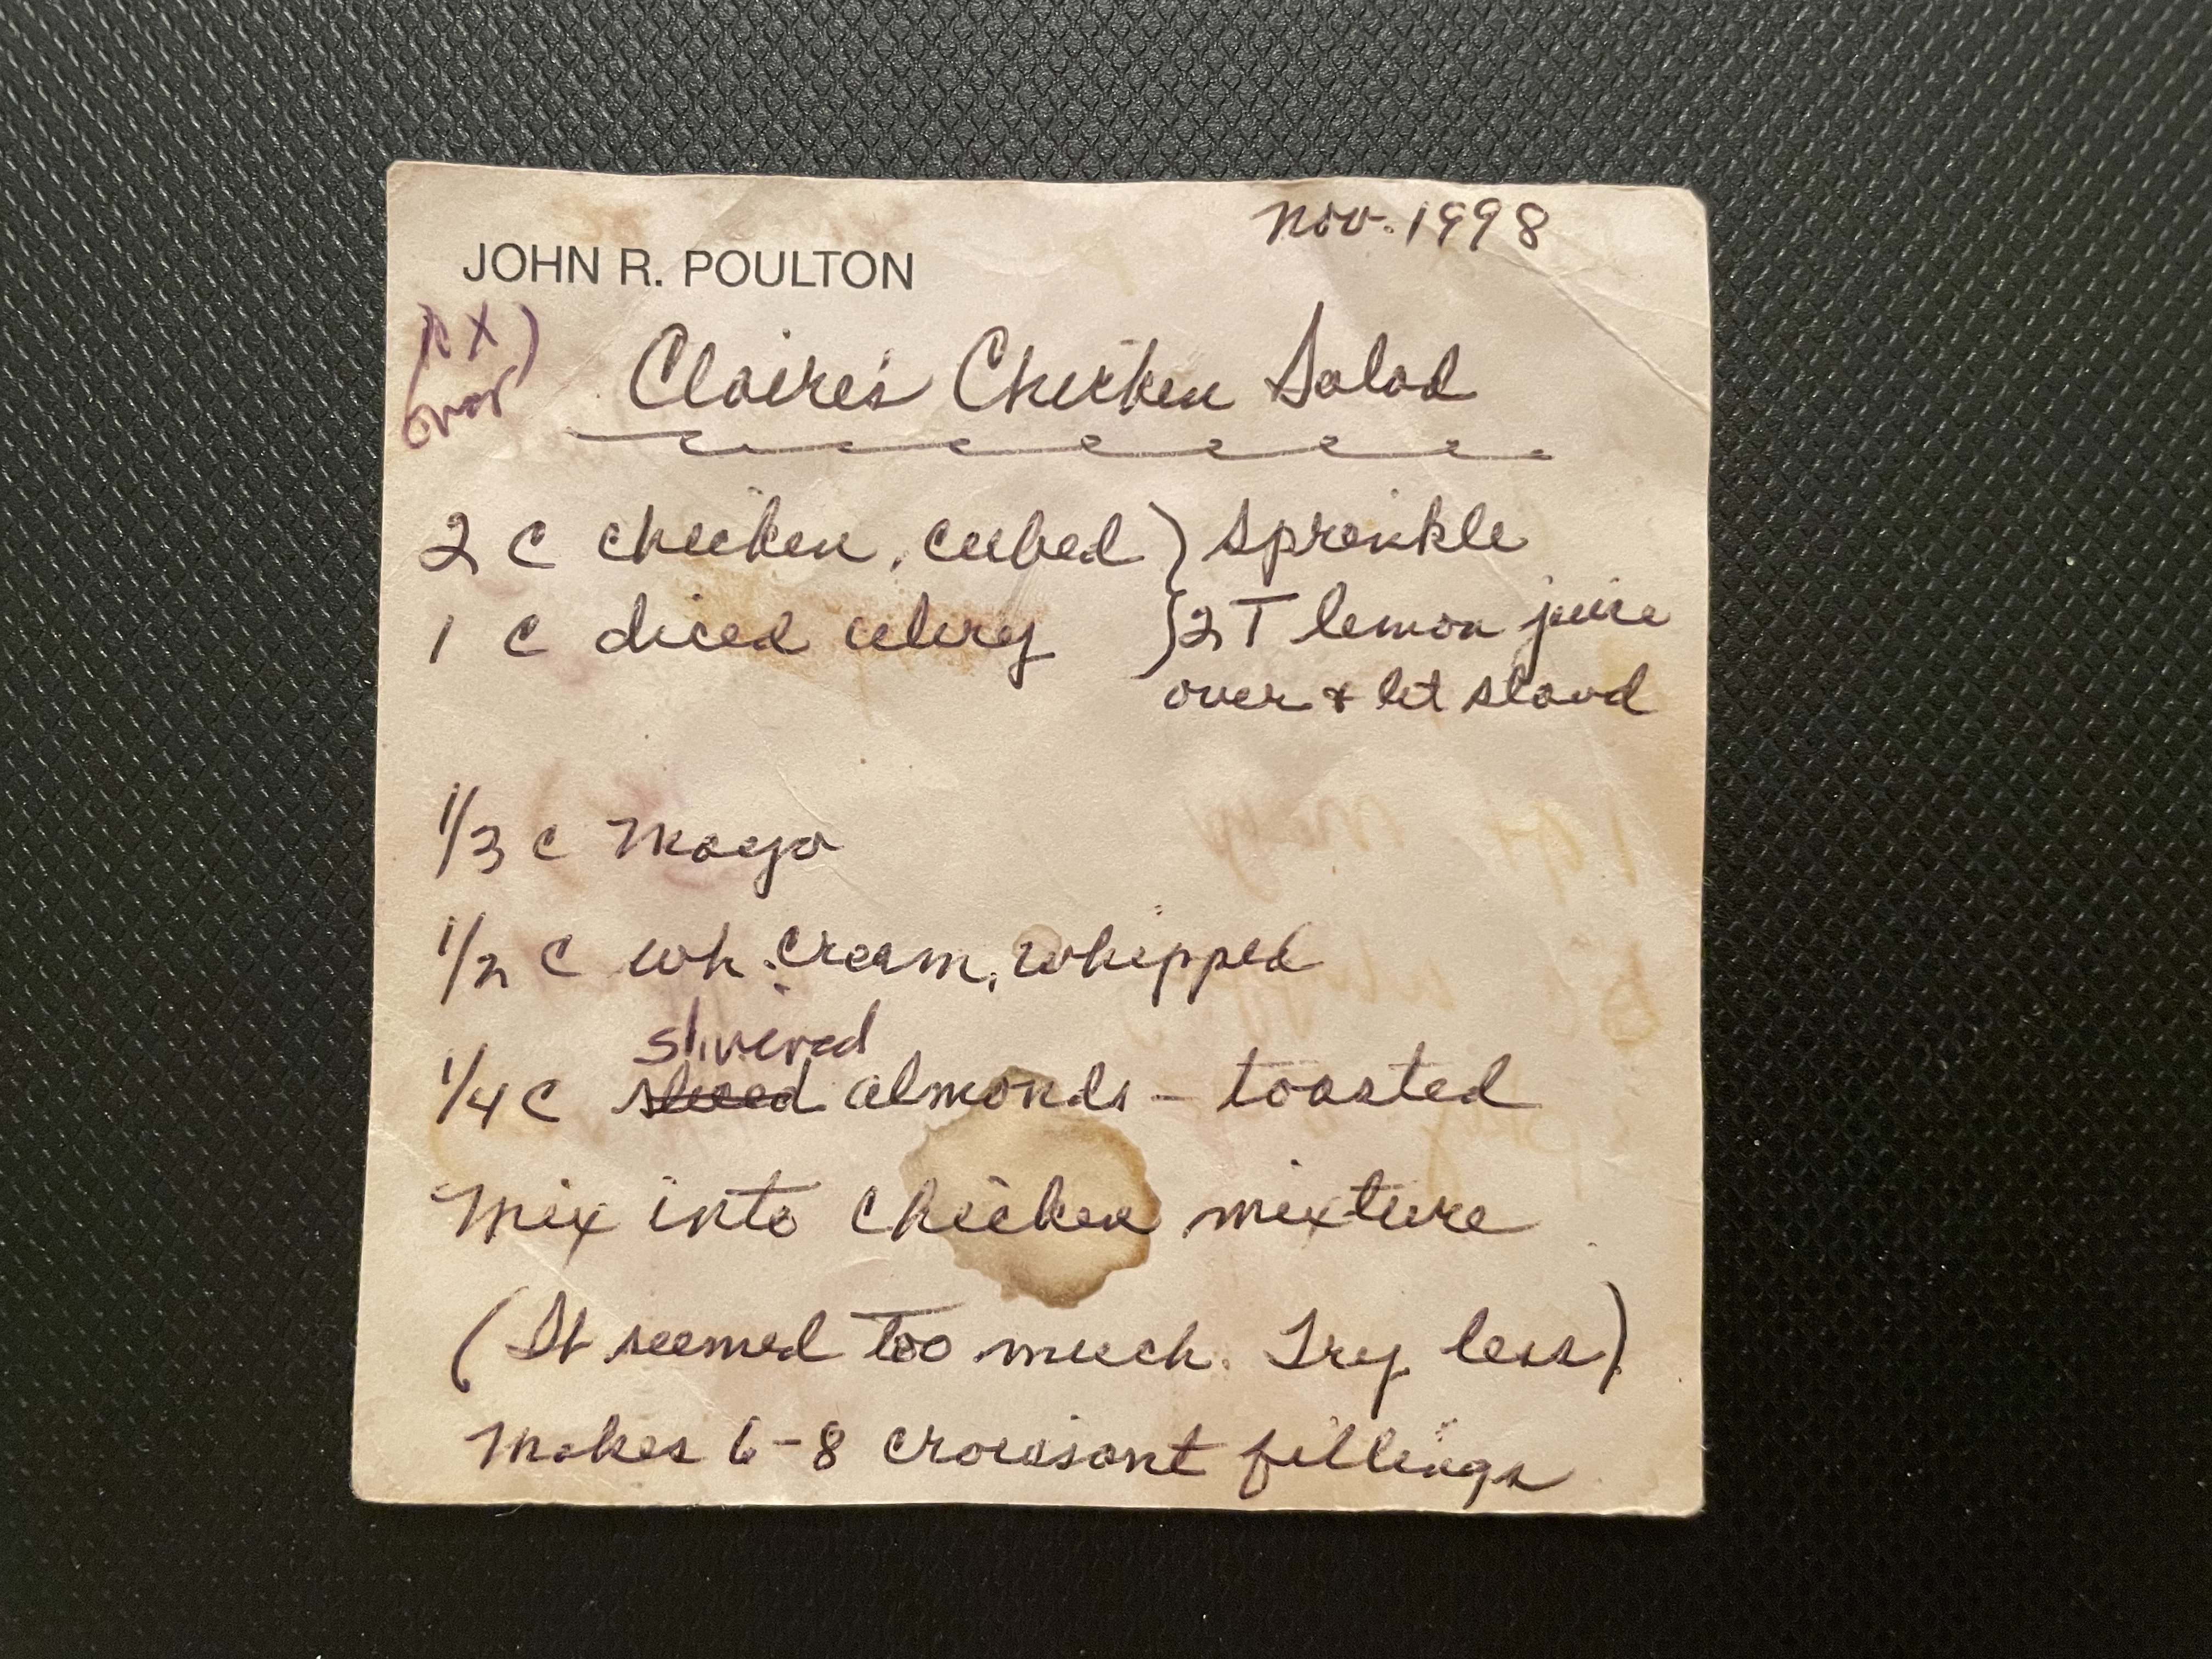 Nov. 1998
JOHN R. POULTON
over)
Claire's Chicken Salad
2 C chicken, cubed } sprinkle
1 C diced celery } 2 T lemon juice
over & let stand
1/3 C Mayo
1/2 C wh. cream, whipped
slivered
1/4 C sliced almonds - toasted
Mix into chicken mixture
(It seemed too much. Try less)
Makes 6-8 croissant fillings